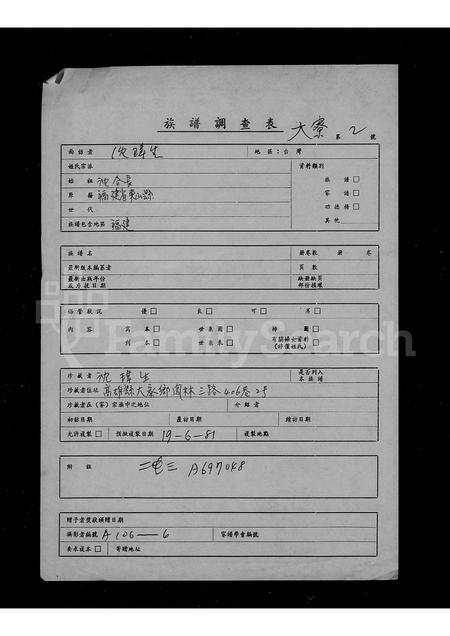 族譜調查表 大寮 第 2 號
面訪者 沈瑋生 地區:台灣
姓氏宗派 資料類別
始祖 沈合長 族譜 □
原籍 福建省東山縣 家譜 □
世代 功德榜 □
族譜包含地區 福建 其他
族譜名 冊卷數 冊 卷
最新版本編纂者 頁數
最新出版年份及原始日期 缺冊缺頁部份描述
保管狀況 優 □ 良 □ 可 □ 劣 □
內容 寫本 □ 世系圖 □ 掃圖 □
刊本 □ 世系表 □ 有關婦女資料(非僅姓氏) □
珍藏者 沈瑋生 是否列入本族譜
珍藏者住址 高雄縣大寮鄉園林三路406巷2弓
珍藏者在(家)宗族中之地位 介紹者
初訪日期 產訪日期 續訪日期
允許複製 □ 預擬複製日期 19-6-81 複製地點
附註 A697048
贈予者獎狀頒贈日期
攝影者編號 A106——6 家譜學會編號
要求複本 □ 寄贈地址
FamilySearch